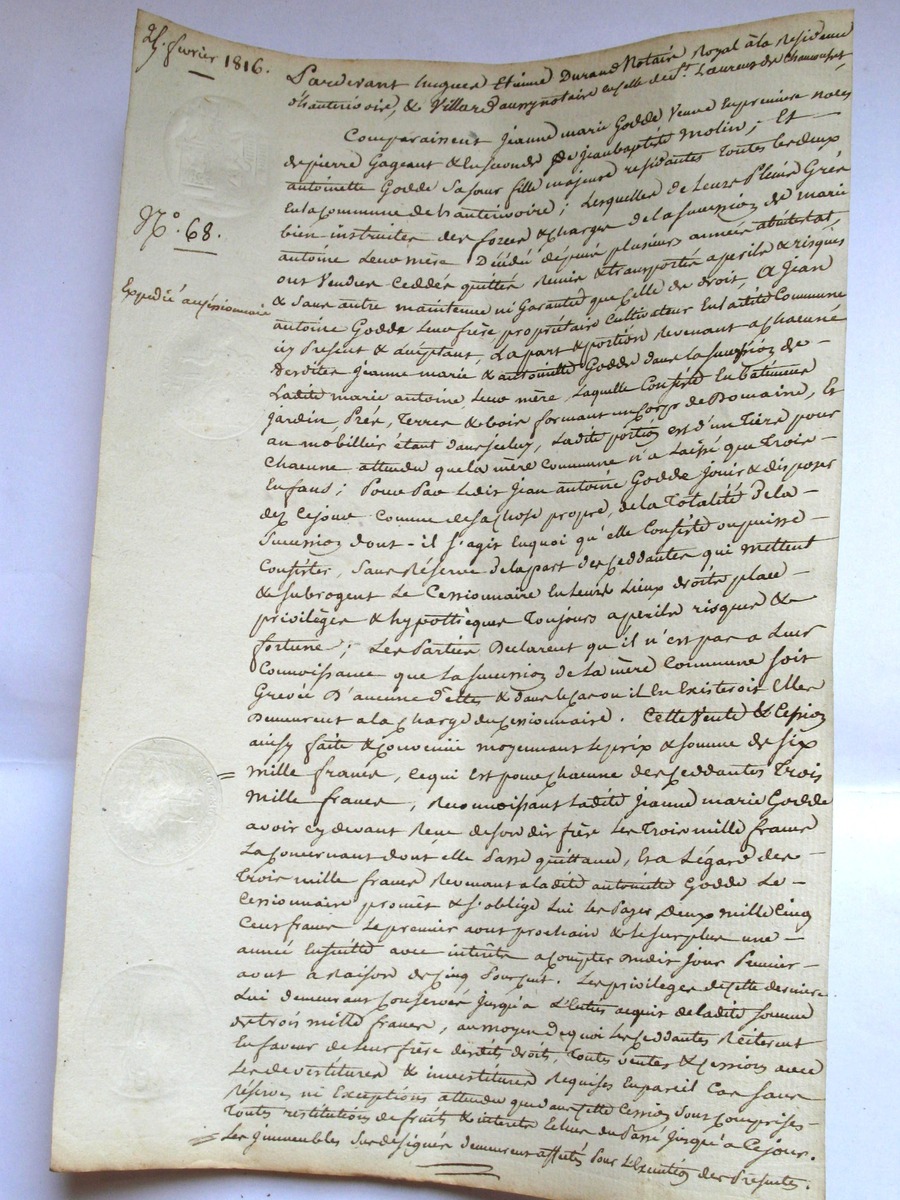 25. fevrier 1816.
Pardevant hugues Etienne Durand Notaire Royal à la Residence
d'hauterivoire, & Villard aussy notaire en celle de St. Laurent de Chamousset
Comparaissent Jeanne marie Godde Veuve En premiere noces
de pierre Gageant & En seconde de Jean baptiste Molin; Et
antoinette Godde Sa sœur fille majeure residantes Toutes les deux
En la Commune de hauterivoire; Lesquelles de Leurs Pleins Grés
N.° 68.
bien instruites des forces & charges de la succession de marie
antoine Leur mère Décédé depuis plusieurs années abintestat,
ont Vendus Ceddés quittés Remis & transportés a perils & risques
Expedié au cessionnaire
& Sans autre maintenue ni Garantie que Celle de droit, a Jean
antoine Godde Leur frère propriétaire Cultivateur En ladite Commune
icy Present & acceptant, La part & portion Revenant a chacune
desdites Jeanne marie & antoinette Godde dans La succession de
Ladite marie antoine Leur mère, Laquelle Consiste En batiments
Jardin, Prés, Terres & bois formant un Corps de Domaine, Et
au mobillier étant dans icelui, Ladite portion est d'un Tiers pour
Chacune attendu que la mère Commune n'a Laissé que Trois
Enfans; Pour Par Ledit Jean antoine Godde Jouir & disposer
dez Ce jour Comme de sa chose propre, de la Totalité de la
Succession dont il s'agit En quoi qu'elle Consiste ou puisse
Consister, Sans Réserve de la part des Ceddantes qui mettent
& subrogent Le Cessionnaire En Leurs Lieux droits place
privilèges & hypothèques Toujours a perils risques &
fortune; Les Parties Declarent qu'il n'est pas a Leur
Connoissance que La succession de La mère Commune soit
Grevée D'aucune Dettes & dans le cas ou il En Existeroit Elles
Demeurent a la Charge du Cessionnaire. Cette Vente & Cession
ainsy faite & Convenue moyennant Le prix & somme de six
mille francs, ce qui Est pour chacune des Ceddantes Trois
mille francs, Reconnoissant Ladite Jeanne marie Godde
avoir cy devant Reçu de son dit frère Les Trois mille francs
La Concernant dont elle Passe quittance, Et a Légard des
Trois mille francs Revenant a ladite antoinette Godde Le
Cessionnaire promet & s'oblige Lui Les Payer Deux mille Cinq
Cent francs Le premier aout prochain & Le surplus une
année Ensuitte avec intérêts a Compter dudit Jour Premier
aout a Raison de Cinq Pour Cent. Les privileges de Cette derniere
Lui demeurant Conservés Jusqu'a L'Entier acquit de ladite somme
de trois mille francs, au moyen de quoi Les Ceddantes Reiterent
En faveur de Leur frère desdits droits, Toutes Ventes & Cessions avec
Les devestitures & investitures Requises En pareil Cas sans
Réserves ni Exceptions attendu que dans Cette Cession sont Comprises
Toutes restitutions de fruits & intérêts Echus du Passé Jusqu'a Ce jour.
Les Jmmeubles Sus désignés demeurent affectés Pour L'Exécution des Présentes.